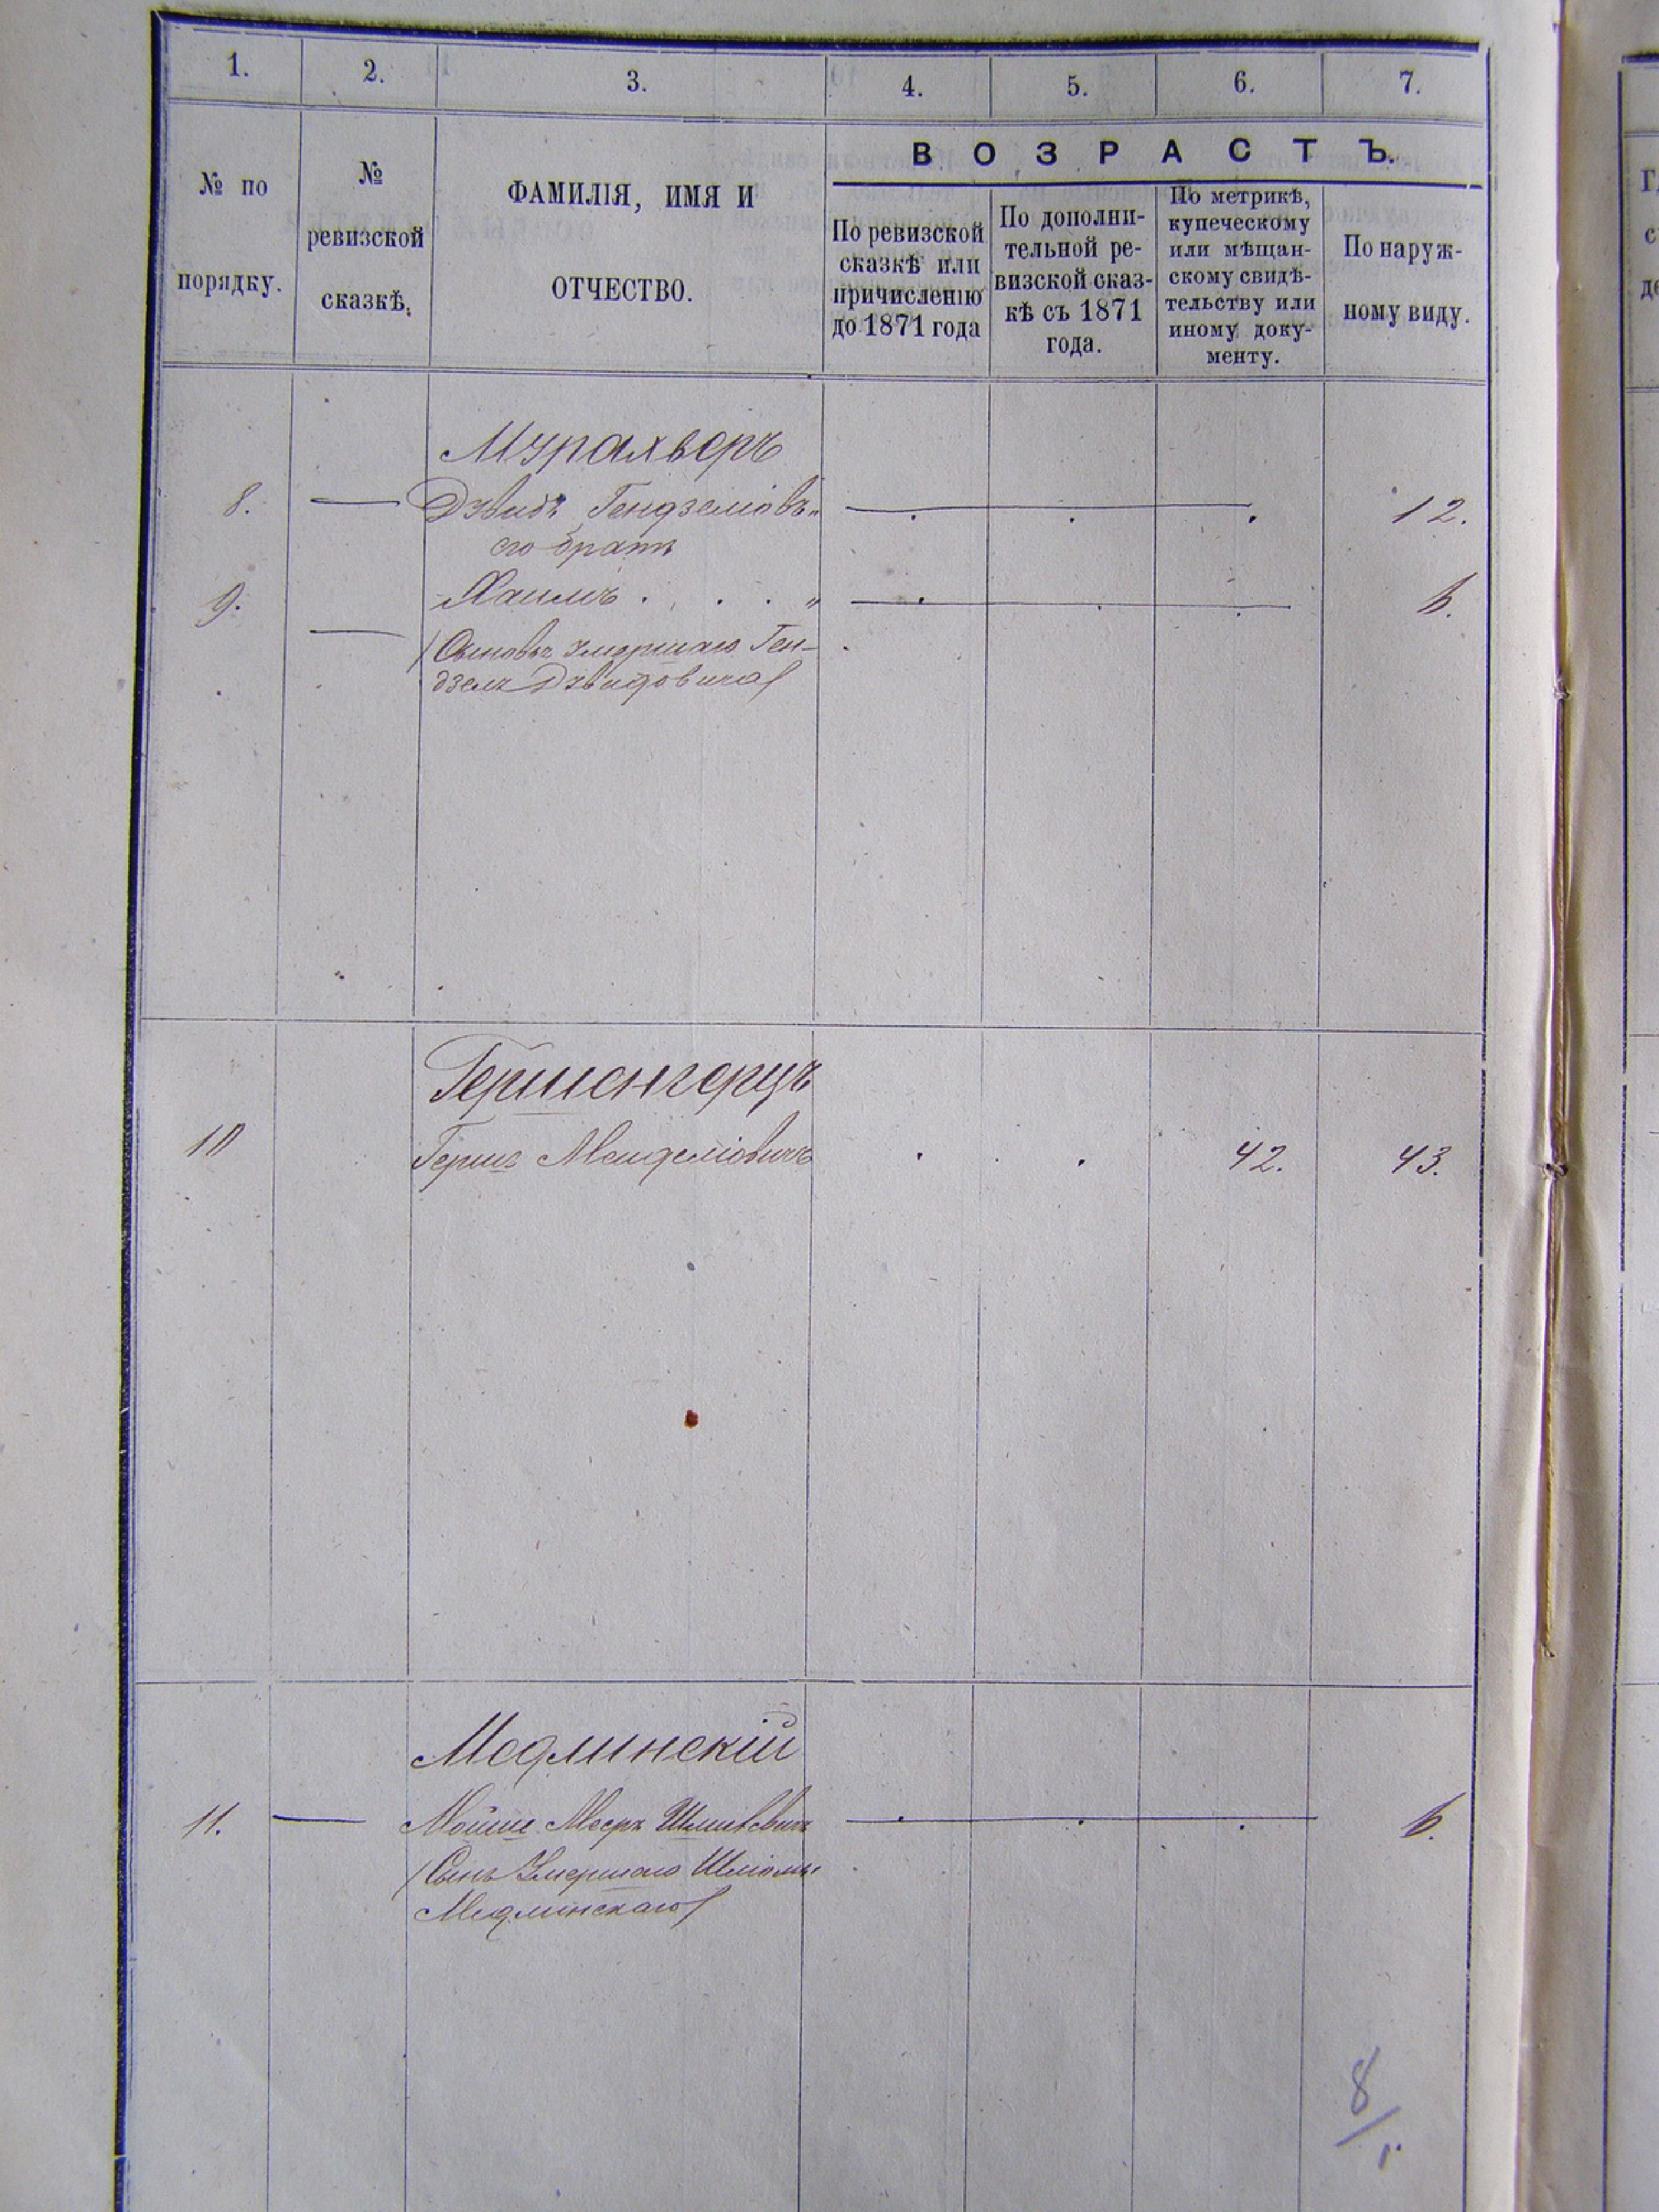 1. 2. 3. 4. 5. 6. 7.
№ по порядку.
№ ревизской сказкѣ.
ФАМИЛІЯ, ИМЯ И
ОТЧЕСТВО.
ВОЗРАСТЪ.
По ревизской
сказкѣ или
причисленію
до 1871 года
По дополни-
тельной ре-
визской сказ-
кѣ съ 1871
года.
По метрикѣ,
купеческому
или мѣщан-
скому свидѣ-
тельству или
иному доку-
менту.
По наруж-
ному виду.
Мурахверъ
8. — Дувидъ Гендзеліовъ — 12.
его братъ
9. — Хаимъ . . . " — 6.
/Сыновья умершаго Ген-
дзеля Дувидовича/
Гершенгерцъ
10 Гершъ Менделіовичъ 42. 43.
Медлинскій
11. — Мойше Мееръ — 6.
/Сынъ умершаго Шліомы
Медлинскаго/
8/